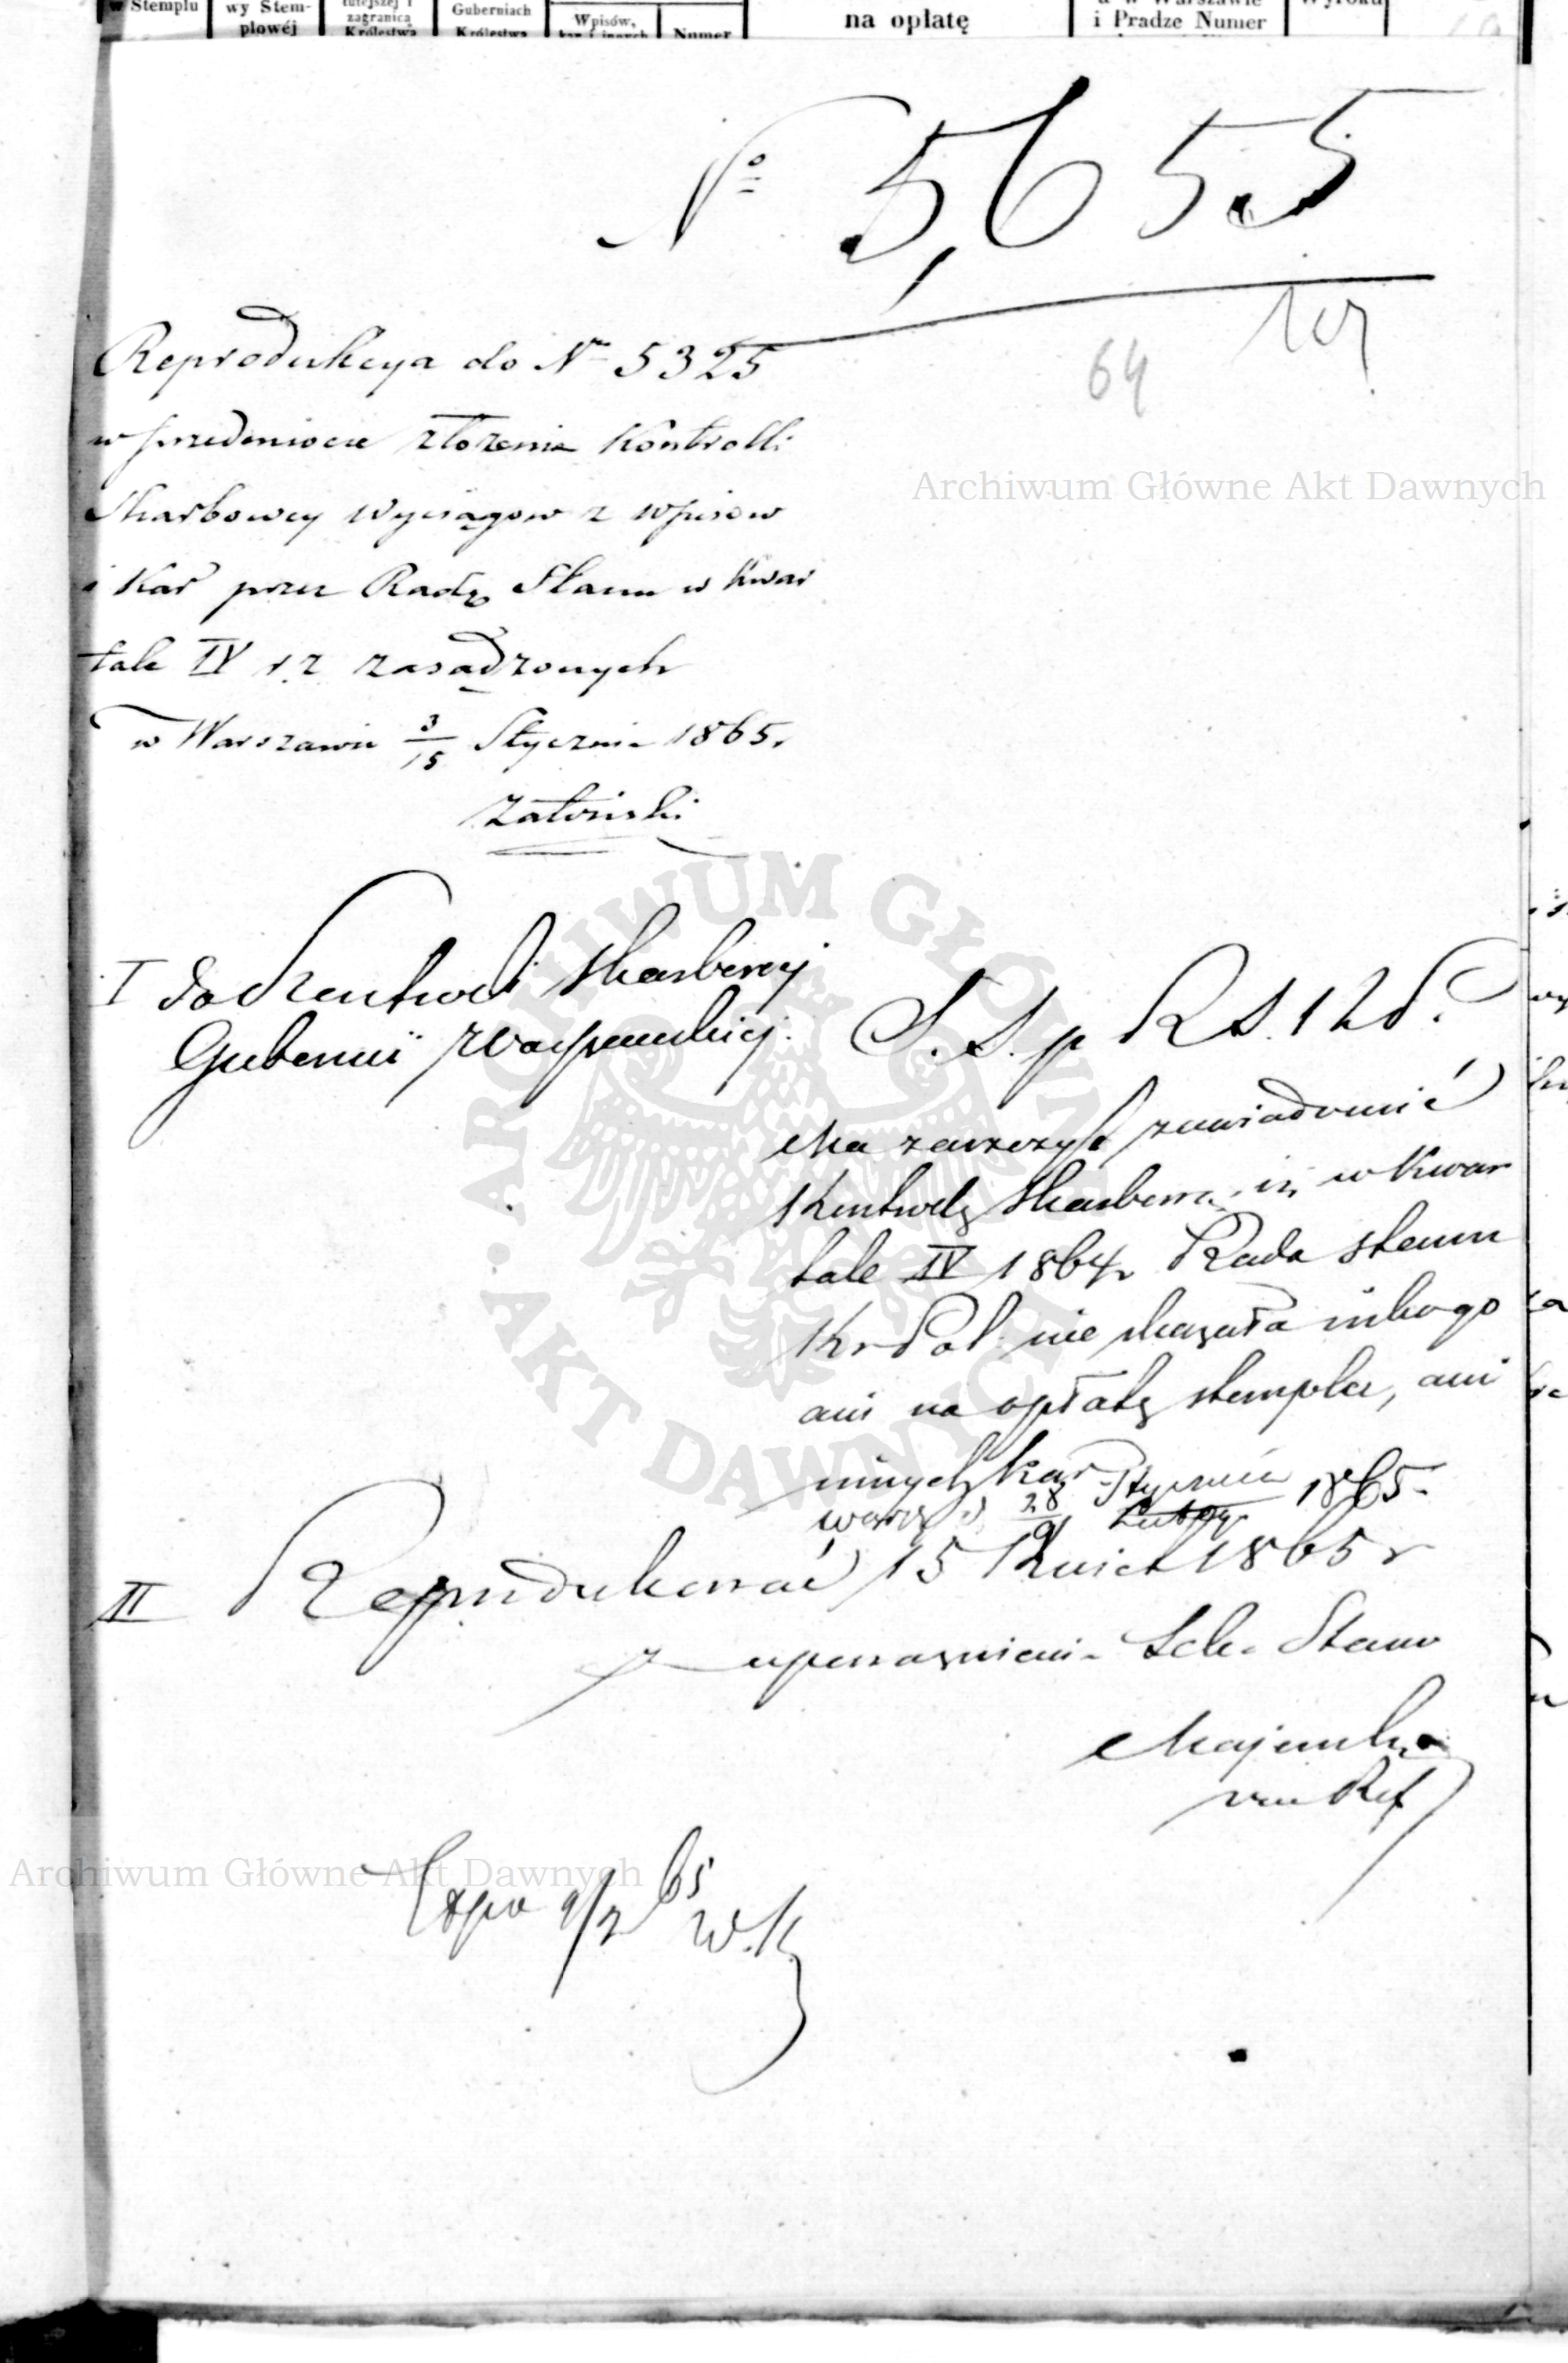 w Stemplu
wy Stem-
plowéj
tutejszej i
zagranicą
Królestwa
Guberniach
Królestwa
Wpisów,
kar i innych
Numer
na opłatę
a w Warszawie
i Pradze Numer
Wyroku
№ 5,655
64
Reprodukcya do № 5325
w przedmiocie złożenia Kontrolli
Skarbowey Wyciągow z wpisow
i Kar przez Radę Stanu w kwar
tale IV r. z zasądzonych
w Warszawie 3/15 Stycznia 1865.
Archiwum Główne Akt Dawnych
I Do Kontroli Skarbowej
Gubernii Warszawskiej.
S. S. p R S. K P.
Ma zaszczyt zawiadomić
Kontrolę Skarbową, iż w Kwar
tale IV 1864 r Rada Stanu
Kr Pol. nie skazała nikogo
ani na opłatę stempla, ani
innych kar
Warsz d. 28/9 Stycznia Lutego 1865.
II Reprodukować 15 Kwiet 1865 r
z upoważnienia Sek. Stanu
Expo 9/2 65
W.K.
ARCHIWUM GŁÓWNE AKT DAWNYCH
Archiwum Główne Akt Dawnych